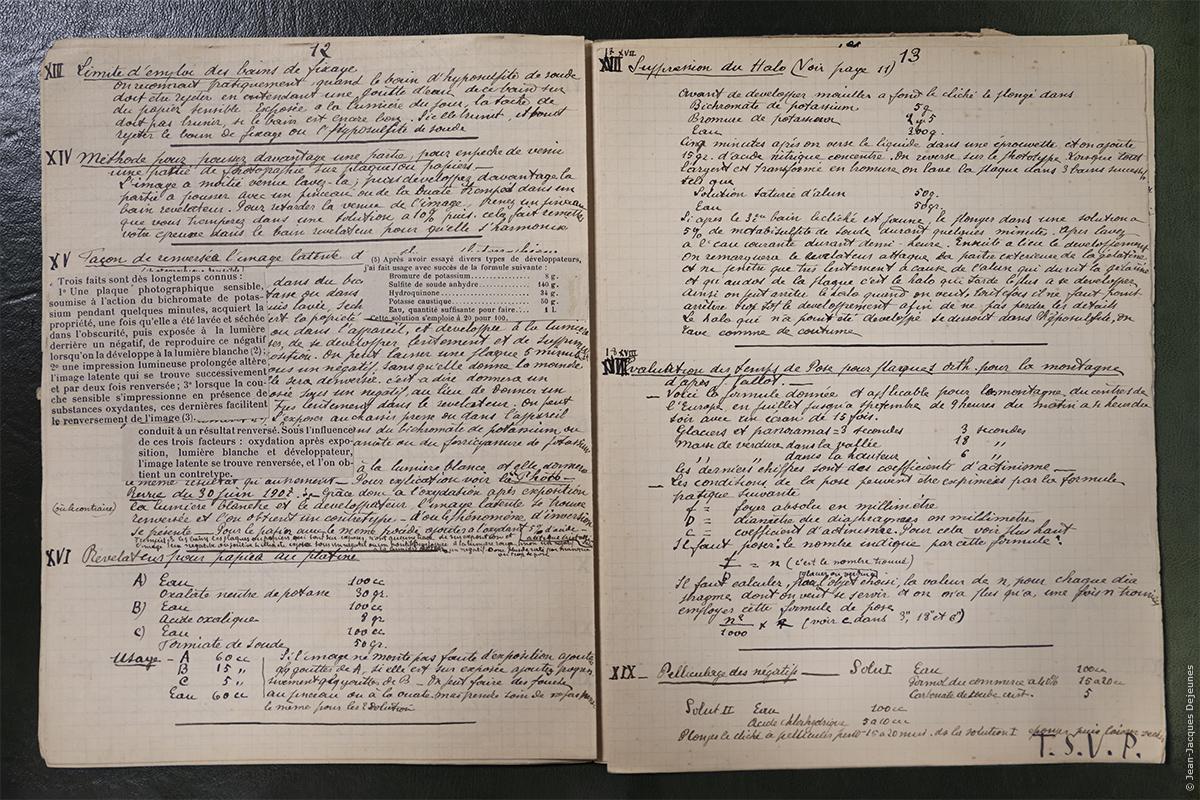 12
XIII Limite d'emploi des bains de fixage
On reconnait pratiquement quand le bain d'hyposulfite de soude
doit être rejeter en entendant une goutte d'eau de ce bain sur
du papier sensible. Exposée à la lumière du jour, la tache ne
doit pas brunir, si le bain est encore bon. Si elle brunit, il faut
rejeter le bain de fixage ou l'hyposulfite de soude
XIV Méthode pour poussez davantage une partie pour empeche de venir
une partie de photographie sur plaques ou papiers
L'image a moitié venue lavez-la; puis developpez davantage la
partie a pousser avec un pinceau ou de la ouate trempés dans un
bain revelateur. Pour retarder la venue de l'image, prenez un pinceau
que vous trempez dans une solution à 10% puis cela fait remettez
votre epreuve dans le bain revelateur pour qu'elle s'harmonise
XV Façon de renversée l'image latente d
Trois faits sont dès longtemps connus :
1° Une plaque photographique sensible,
soumise à l'action du bichromate de potas-
sium pendant quelques minutes, acquiert la
propriété, une fois qu'elle a été lavée et séchée
dans l'obscurité, puis exposée à la lumière
derrière un négatif, de reproduire ce négatif
lorsqu'on la développe à la lumière blanche (2);
2° une impression lumineuse prolongée altère
l'image latente qui se trouve successivement
et par deux fois renversée; 3° lorsque la cou-
che sensible s'impressionne en présence de
substances oxydantes, ces dernières facilitent
le renversement de l'image (3).
(5) Après avoir essayé divers types de développateurs,
j'ai fait usage avec succès de la formule suivante :
Bromure de potassium 8 g.
Sulfite de soude anhydre 140 g.
Hydroquinone 34 g.
Potasse caustique 50 g.
Eau, quantité suffisante pour faire 1 L.
Cette solution s'emploie à 20 pour 100
dans du bic
ou dans
lavée, seul
ert la popiété
ou dans l'appareil, et developpée à la lumière
de se developper lentement et de supprimer
position. On peut laisser une plaque 5 minutes
sous un negatif, sans qu'elle donne la moindre
le sera renversée, c'est a dire donnera un
sous un negatif au lieu de donner un
très lentement dans le revelateur. On peut
l'exposer au chassis presse ou dans l'appareil
conduit à un résultat renversé. Sous l'influence
de ces trois facteurs : oxydation après expo-
sition, lumière blanche et développateur,
l'image latente se trouve renversée, et l'on ob-
tient un contretype.
ns du bichromate de potassium, ou
ou du ferricyanure de potassium
à la lumière blanche et elle donnera
le même resultat qu'autrement — Pour explication voir la Photo-
Revue du 30 juin 1907. Grâce donc a l'oxydation après exposition
(ou le contraire) la lumière blanche et le developpateur, l'image latente se trouve
renversée et l'on obtient un contretype — d'où le phénomène d'inversion
se presente
XVI Revelateurs pour papier au platine
A) Eau 100cc
Oxalate neutre de potasse 30 gr.
B) Eau 100cc
Acide oxalique 8 gr
C) Eau 100cc
Formiate de Soude 50 gr.
Usage - A 60cc
B 15 "
C 5 "
Eau 60cc
Si l'image ne monte pas faute d'exposition ajoutez
qq gouttes de A, si elle est sur exposée ajoutez progres
sivement qq gouttes de B — On peut faire des fondus
au pinceau ou à la ouate mais prendre soin de ne pas
le meme pour les 2 solution
13
XVII
Suppression du Halo (Voir page 11)
Avant de developper mouiller a fond le cliché le plongé dans
Bichromate de potassium 5g.
Bromure de potassium
Eau 300g.
Cinq minutes après on verse le liquide dans une éprouvette et on ajoute
15gr. d'acide nitrique concentré. On reverse sur le phototype. Lorsque tout
l'argent est transformé en bromure on lave la plaque dans 3 bains successifs
tels que
Solution saturée d'alun 50g.
Eau 50gr.
Si après le 3eme bain le cliché est jaune, le plonger dans une solution a
5% de metabisulfite de soude durant quelques minutes. Après lavez
à l'eau courante durant demi-heure. Ensuite a lieu le developpement
On remarquera le revelateur attaque la partie exterieure de la gelatine
et ne penètre que très lentement à cause de l'alun qui durcit la gelatine
et qu'au dos de la plaque c'est le halo qui tarde le plus a se developper
ainsi on peut arrêter le halo quand on veut, toutefois il ne faut point
arrêter trop tôt le developpement afin de ne pas perdre le detail
Le halo qui n'a point été developpé se dissout dans l'hyposulfite, on
lave comme de coutume
XVIII
Evaluation des temps de Pose pour plaques orth. pour la montagne
d'après Vallot. —
— Voici la formule donnée et applicable pour la montagne, du centre de
l'Europe en juillet jusqu'à septembre de 9 heures du matin a 4 heures du
soir avec un ecran de 3 fois.
Glaciers et panoramas = 3 secondes 3 secondes
Masse de verdure dans la vallée 18 "
" " dans la hauteur 6 "
Ces derniers chiffres sont des coefficients d'actinisme —
— Les conditions de la pose peuvent être exprimées par la formule
pratique suivante
f = foyer absolu en millimètre
D = diamètre du diaphragme en millimètres
c = coefficient d'actinisme. Pour cela voir plus haut
Il faut poser le nombre indiqué par cette formule :
f/D = n (c'est le nombre trouvé)
Il faut calculer, pour l'objet choisi, la valeur de n, pour chaque dia
phragme dont on veut se servir et on n'a plus qu'a, une fois n trouvé
employer cette formule de pose
n²/1000 × c (voir c dans 3", 18" et 6")
XIX — Pelliculage des négatifs — Solut I Eau 100cc
Formol du commerce a 40% 15 a 20cc
Carbonate de soude crist. 5
Solut II Eau 100cc
Acide chlorhydrique 5 a 10cc
Plongez le cliché a pelliculer pend. 15 a 20 min. ds la solution I
T.S.V.P.
© Jean-Jacques Dejeunes